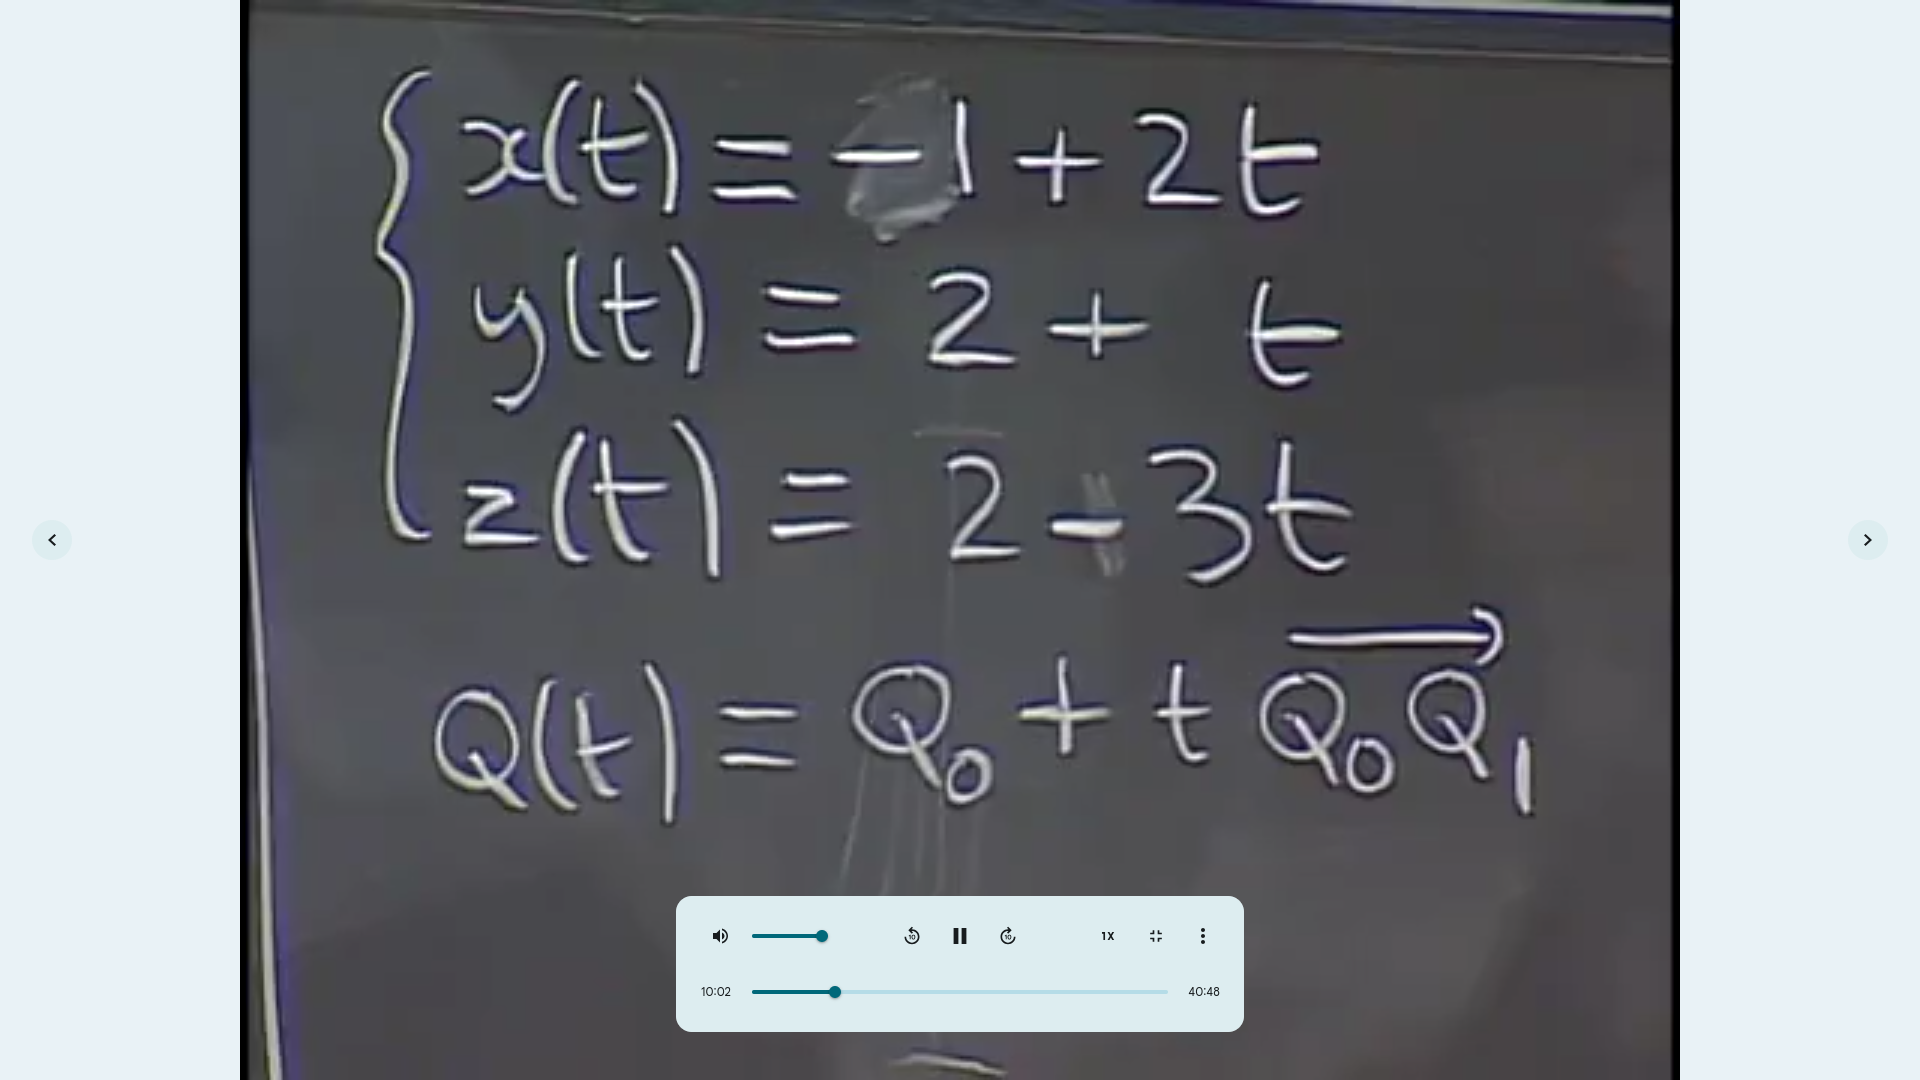 x(t) = -1 + 2t
y(t) = 2 + t
z(t) = 2 - 3t
Q(t) = Q₀ + t Q₀Q₁
1X
10:02
40:48